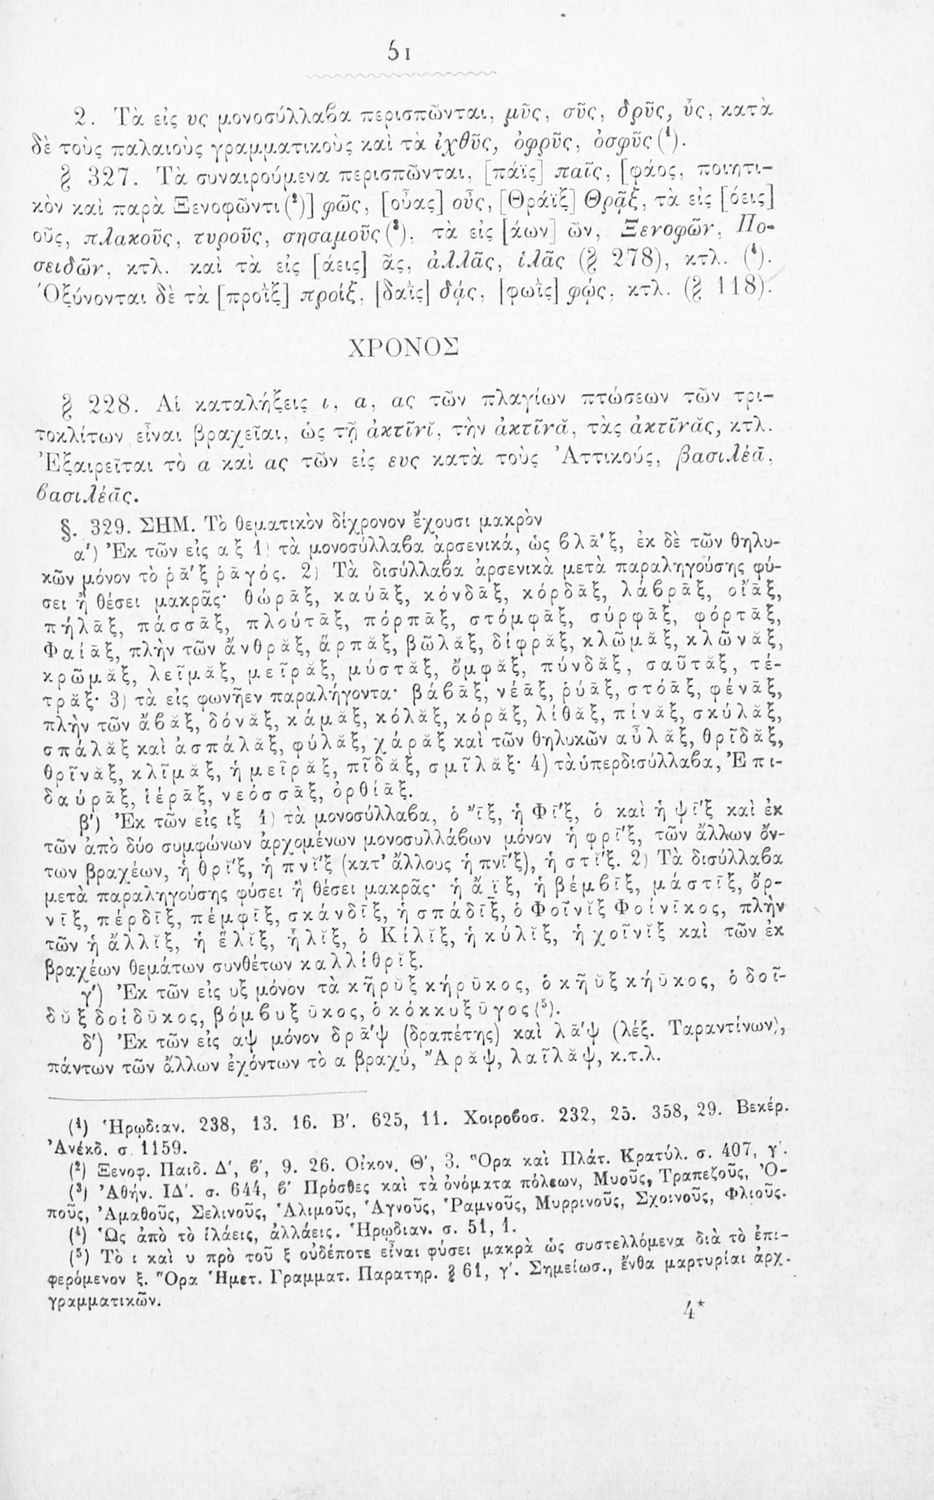 51
2. Τὰ εἰς υς μονοσύλλαβα περισπῶνται, μῦς, σῦς, δρῦς, ὗς, κατὰ
δὲ τοὺς παλαιοὺς γραμματικοὺς καὶ τὰ ἰχθῦς, ὀφρῦς, ὀσφῦς (¹).
§ 327. Τὰ συναιρούμενα περισπῶνται, [πάϊς] παῖς, [φάος, ποιητι-
κὸν καὶ παρὰ Ξενοφῶντι (²)] φῶς, [οὖας] οὖς, [Θράϊξ] Θρᾷξ, τὰ εἰς [όεις]
οῦς, πλακοῦς, τυροῦς, σησαμοῦς (³), τὰ εἰς [άων] ῶν, Ξενοφῶν, Πο-
σειδῶν, κτλ. καὶ τὰ εἰς [άεις] ᾶς, ἀλλᾶς, ἰλᾶς (§ 278), κτλ. (⁴).
Ὀξύνονται δὲ τὰ [προῒξ] προίξ, [δαῒς] δᾴς, [φωῒς] φῴς, κτλ. (§ 118).
ΧΡΟΝΟΣ
§ 228. Αἱ καταλήξεις ι, α, ας τῶν πλαγίων πτώσεων τῶν τρι-
τοκλίτων εἶναι βραχεῖαι, ὡς τῇ ἀκτῖνῐ, τὴν ἀκτῖνᾰ, τὰς ἀκτῖνᾰς, κτλ.
Ἐξαιρεῖται τὸ α καὶ ας τῶν εἰς ευς κατὰ τοὺς Ἀττικούς, βασιλέᾱ,
βασιλέᾱς.
§. 329. ΣΗΜ. Τὸ θεματικὸν δίχρονον ἔχουσι μακρὸν
α') Ἐκ τῶν εἰς αξ 1) τὰ μονοσύλλαβα ἀρσενικά, ὡς βλᾱ'ξ, ἐκ δὲ τῶν θηλυ-
κῶν μόνον τὸ ῥᾱ'ξ ῥᾱγός. 2) Τὰ δισύλλαβα ἀρσενικὰ μετὰ παραληγούσης φύ-
σει ἢ θέσει μακρᾶς· θώρᾱξ, καύᾱξ, κόνδᾱξ, κόρδᾱξ, λάβρᾱξ, οἴᾱξ,
πήλᾱξ, πάσσᾱξ, πλούτᾱξ, πόρπᾱξ, στόμφᾱξ, σύρφᾱξ, φόρτᾱξ,
Φαίᾱξ, πλὴν τῶν ἄνθρᾰξ, ἅρπᾰξ, βῶλᾰξ, δίφρᾰξ, κλῶμᾰξ, κλῶνᾰξ,
κρῶμᾰξ, λεῖμᾰξ, μεῖρᾰξ, μύστᾰξ, ὄμφᾰξ, πύνδᾰξ, σαῦτᾰξ, τέ-
τρᾰξ· 3) τὰ εἰς φωνῆεν παραλήγοντα· βάβᾱξ, νέᾱξ, ῥύᾱξ, στόᾱξ, φένᾱξ,
πλὴν τῶν ἄβᾰξ, δόνᾰξ, κάμᾰξ, κόλᾰξ, κόρᾰξ, λίθᾰξ, πίνᾰξ, σκύλᾰξ,
σπάλᾰξ καὶ ἀσπάλᾰξ, φύλᾰξ, χάρᾰξ καὶ τῶν θηλυκῶν αὖλᾰξ, θρῖδᾰξ,
θρῖνᾰξ, κλῖμᾰξ, ἡ μεῖρᾰξ, πῖδᾰξ, σμῖλᾰξ· 4) τὰ ὑπερδισύλλαβα, Ἐπι-
δαύρᾱξ, ἱέρᾱξ, νεόσσᾱξ, ὀρθίᾱξ.
β') Ἐκ τῶν εἰς ιξ 1) τὰ μονοσύλλαβα, ὁ ῎ῑξ, ἡ Φῑ'ξ, ὁ καὶ ἡ ψῑ'ξ καὶ ἐκ
τῶν ἀπὸ δύο συμφώνων ἀρχομένων μονοσυλλάβων μόνον ἡ φρῑ'ξ, τῶν ἄλλων ὄν-
των βραχέων, ἡ θρῐ'ξ, ἡ πνῐ'ξ (κατ' ἄλλους ἡ πνῑ'ξ), ἡ στῐ'ξ. 2) Τὰ δισύλλαβα
μετὰ παραληγούσης φύσει ἢ θέσει μακρᾶς· ἡ ἄϊξ, ἡ βέμβῑξ, μάστῑξ, ὄρ-
νῑξ, πέρδῑξ, πέμφῑξ, σκάνδῑξ, ἡ σπάδῑξ, ὁ Φοῖνῑξ Φοίνῑκος, πλὴν
τῶν ἡ ἄλλῐξ, ἡ ἕλῐξ, ἧλῐξ, ὁ Κίλῐξ, ἡ κύλῐξ, ἡ χοῖνῐξ καὶ τῶν ἐκ
βραχέων θεμάτων συνθέτων καλλίθρῐξ.
γ') Ἐκ τῶν εἰς υξ μόνον τὰ κῆρῡξ κήρῡκος, ὁ κῆῡξ κήῡκος, ὁ δοῖ-
δῡξ δοίδῡκος, βόμβυξ ῡκος, ὁ κόκκυξ ῡγος (⁵).
δ') Ἐκ τῶν εἰς αψ μόνον δρᾱ'ψ (δραπέτης) καὶ λᾱ'ψ (λέξ. Ταραντίνων),
πάντων τῶν ἄλλων ἐχόντων τὸ α βραχύ, Ἄρᾰψ, λαῖλᾰψ, κ.τ.λ.
(¹) Ἡρωδιαν. 238, 13. 16. Β'. 625, 11. Χοιροβοσ. 232, 25. 358, 29. Βεκέρ.
Ἀνέκδ. σ. 1159.
(²) Ξενοφ. Παιδ. Δ', β', 9. 26. Οἰκον. Θ', 3. Ὅρα καὶ Πλάτ. Κρατύλ. σ. 407, γ'.
(³) Ἀθήν. ΙΔ'. σ. 644, β' Πρόσθες καὶ τὰ ὀνόματα πόλεων, Μυοῦς, Τραπεζοῦς, Ὀ-
ποῦς, Ἀμαθοῦς, Σελινοῦς, Ἁλιμοῦς, Ἁγνοῦς, Ῥαμνοῦς, Μυρρινοῦς, Σχοινοῦς, Φλιοῦς.
(⁴) Ὡς ἀπὸ τὸ ἰλάεις, ἀλλάεις. Ἡρωδιαν. σ. 51, 1.
(⁵) Τὸ ι καὶ υ πρὸ τοῦ ξ οὐδέποτε εἶναι φύσει μακρὰ ὡς συστελλόμενα διὰ τὸ ἐπι-
φερόμενον ξ. Ὅρα Ἡμετ. Γραμματ. Παρατηρ. § 61, γ'. Σημείωσ., ἔνθα μαρτυρίαι ἀρχ.
γραμματικῶν.
4*